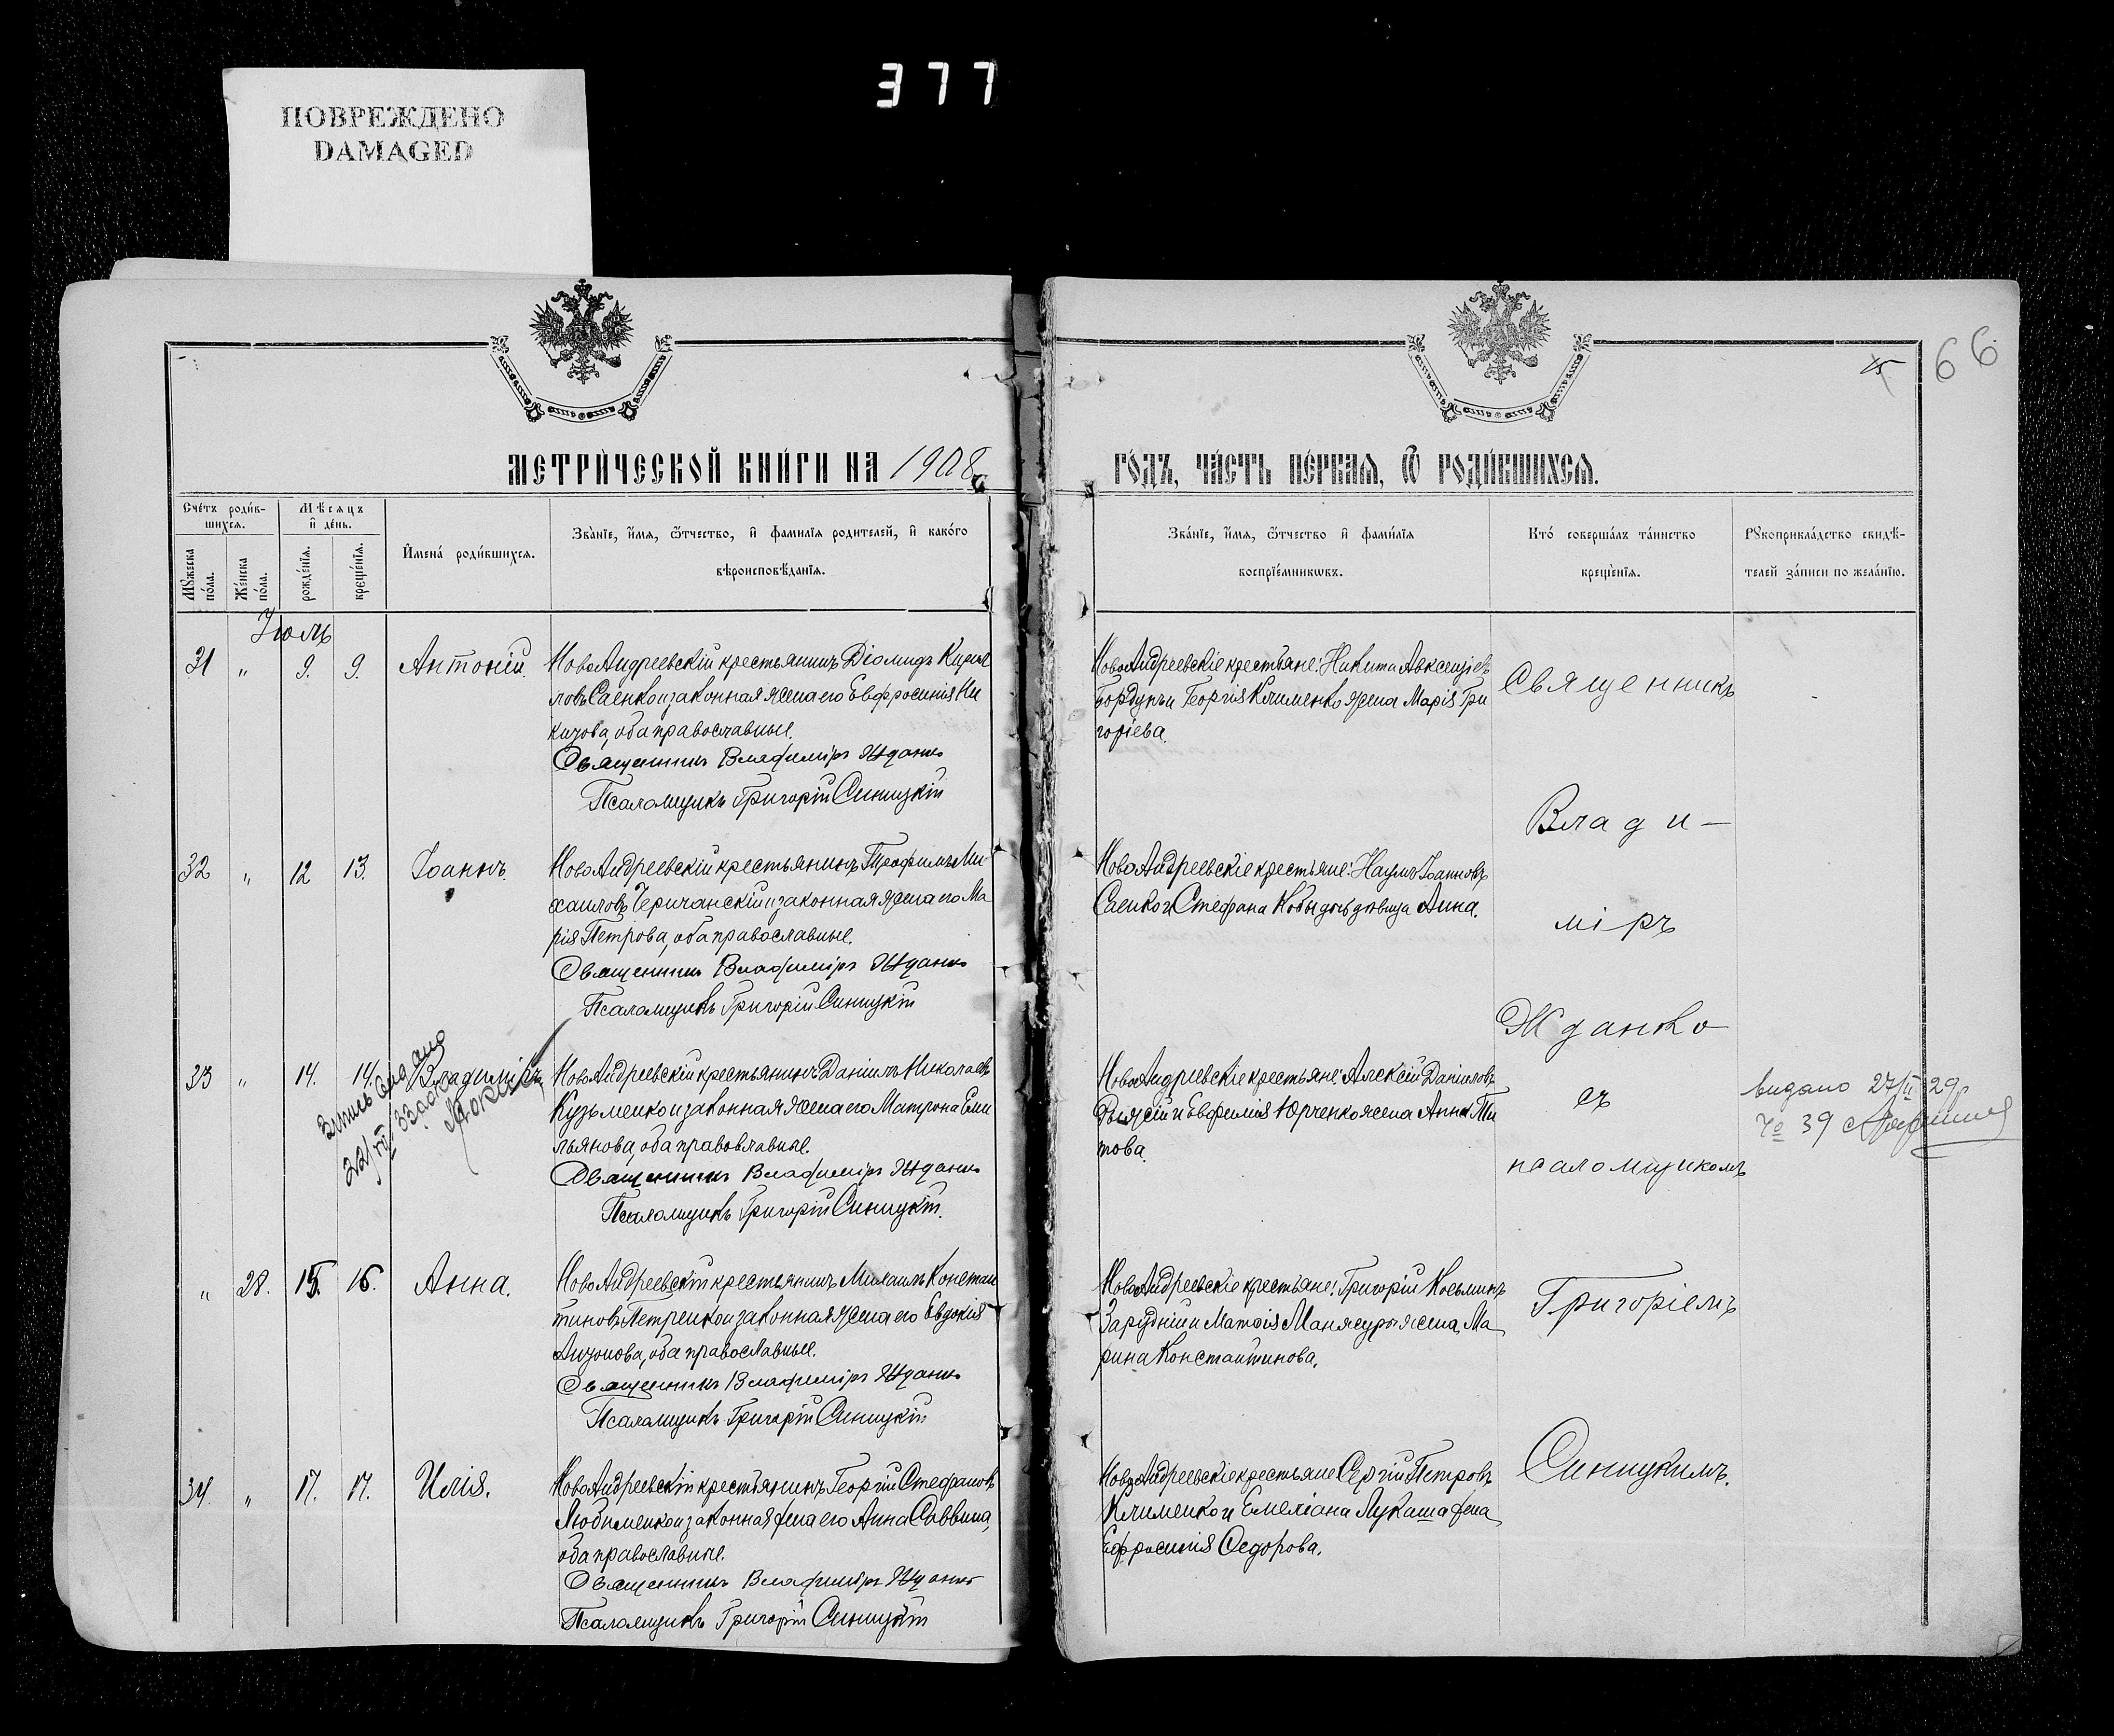 377
ПОВРЕЖДЕНО
DAMAGED
66
МЕТРИ́ЧЕСКОЙ КНИ́ГИ НА 1908
ГО́ДЪ, ЧА́СТЬ ПЕ́РВАЯ, Ѿ РОДИ́ВШИХСЯ.
Сче́тъ роди́в-
шихся.
Мѣсяцъ
и де́нь.
Мꙋжеска
по́ла.
Же́нска
по́ла.
рожде́нїя.
креще́нїя.
Имена́ роди́вшихся.
Зва́нїе, и́мя, ѻ́тчество, и фами́лїя роди́телей, и како́го
вѣроисповѣ́данїя.
Зва́нїе, и́мя, ѻ́тчество и фами́лїя
воспрїе́мникѡвъ.
Кто̀ соверша́лъ та́инство
креще́нїя.
Рꙋкоприкла́дство свидѣ́-
телей за́писи по жела́нїю.
Іюль
31 " 9. 9. Антоній.
НовоАндреевскій крестьянинъ Діомидъ Кирил
ловъ Саенко и законная жена его Евфросинія Ни
кизова, оба православные.
Священникъ Владиміръ Жданко
Псаломщикъ Григорій Синицкій
НовоАндреевскіе крестьяне: Никита Авксентіевъ
Бордунъ и Георгія Клименко жена Марія Гри
горіева.
32 " 12 13. Іоаннъ.
НовоАндреевскій крестьянинъ Трофимъ Ми-
хаиловъ Черичанскій и законная жена его Ма
рія Петрова, оба православные.
Священникъ Владиміръ Жданко
Псаломщикъ Григорій Синицкій
НовоАндреевскіе крестьяне: Наумъ Іоанновъ
Саенко и Стефана Кобы дочь дѣвица Анна.
33 " 14. 14. Владиміръ
видано
НовоАндреевскій крестьянинъ Даніилъ Николаевъ
Кузьменко и законная жена его Матрона Еми
льянова, оба православные.
Священникъ Владиміръ Жданко
Псаломщикъ Григорій Синицкій.
НовоАндреевскіе крестьяне: Алексій Даніиловъ
и Евфимія Юрченко жена Анна Ти
това.
видано 27/II 29
№ 39
" 28. 15. 16. Анна.
НовоАндреевскій крестьянинъ Михаилъ Констан
тиновъ Петренко и законная жена его Евдокія
Анзонова, оба православные.
Священникъ Владиміръ Жданко
Псаломщикъ Григорій Синицкій
НовоАндреевскіе крестьяне: Григорій Косьминъ
Заруднiй и Матвія Манжуры жена Ма
рина Константинова.
34. " 17. 17. Илія.
НовоАндреевскій крестьянинъ Георгій Стефановъ
Любименко и законная жена его Анна Саввина,
оба православные.
Священникъ Владиміръ Жданко
Псаломщикъ Григорій Синицкій
НовоАндреевскіе крестьяне Сергій Петровъ
Клименко и Емеліана Лукаша жена
Ефросинія Ѳедорова.
Священникъ
Влади-
міръ
Жданко
съ
псаломщикомъ
Григоріемъ
Синицкимъ.